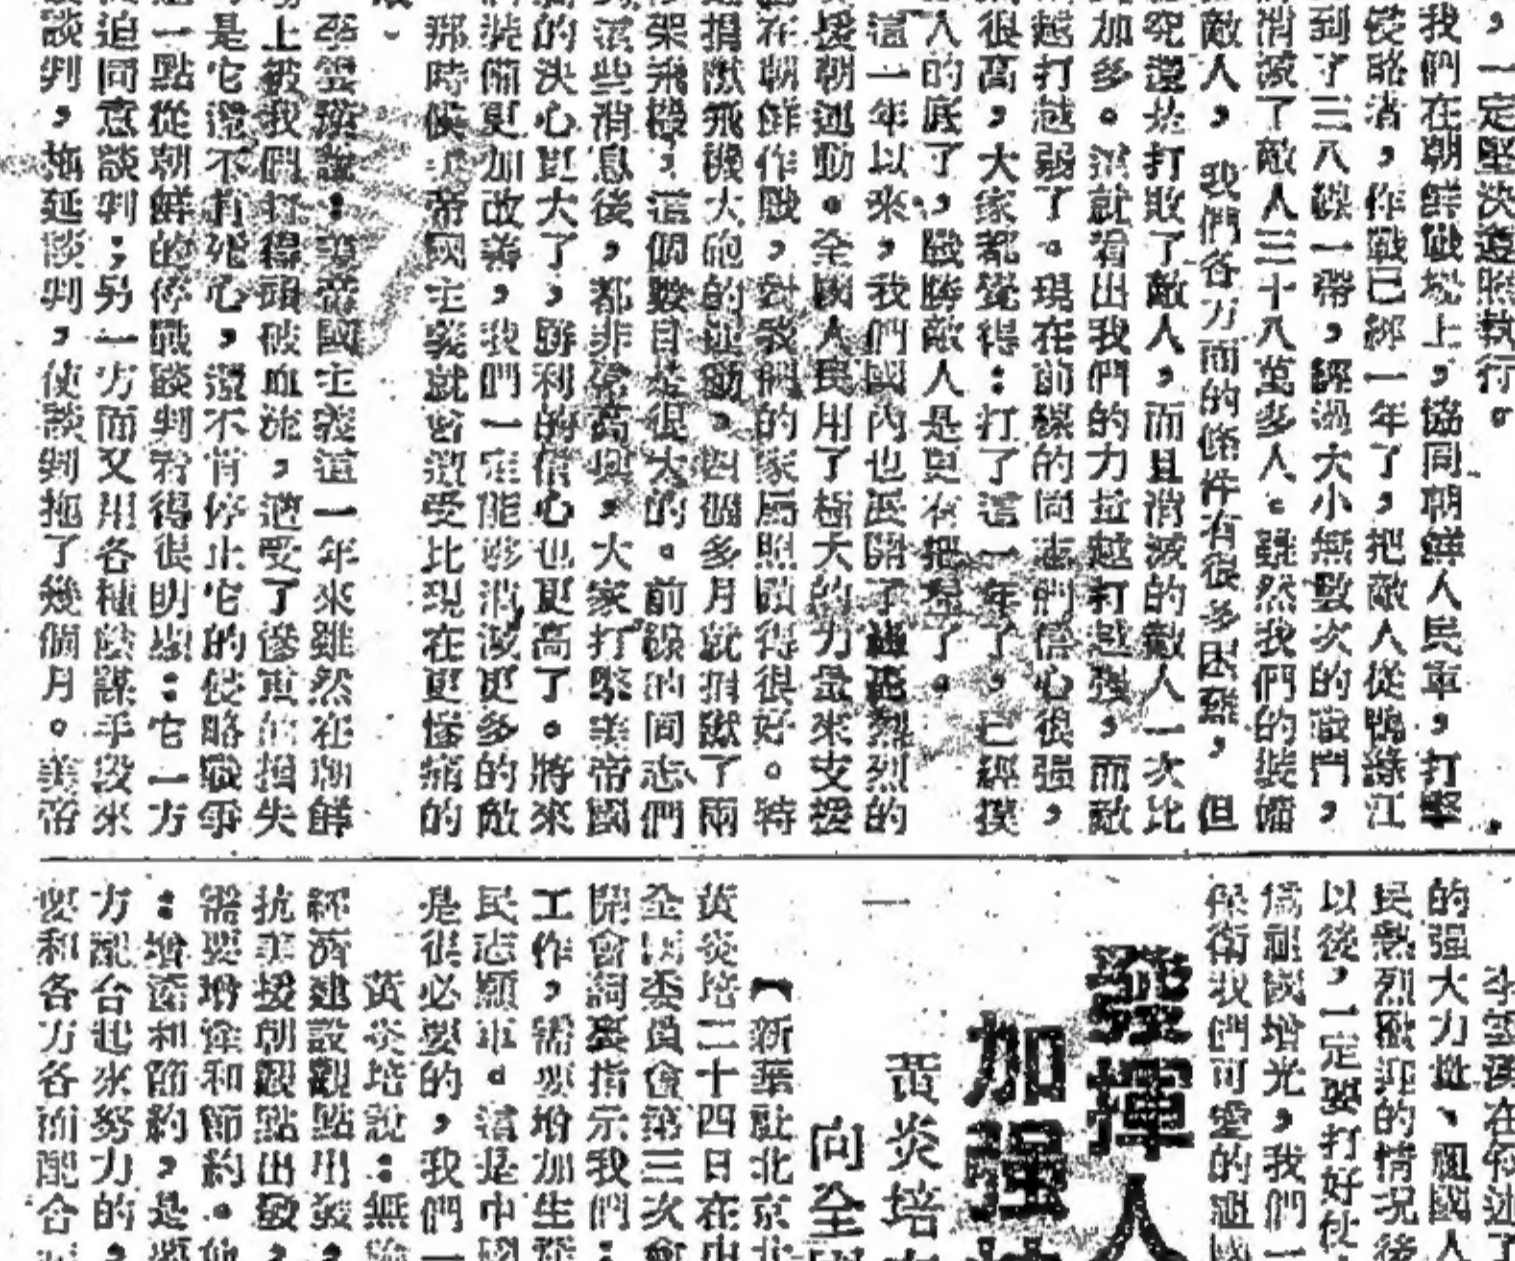 ，一定堅決遵照執行。
我們在朝鮮戰場上，協同朝鮮人民軍，打擊
侵略者，作戰已經一年了，把敵人從鴨綠江
到了三八線一帶，經過大小無數次的戰鬥，
消滅了敵人三十八萬多人。雖然我們的裝備
敵人，我們各方面的條件有很多困難，但
究還是打敗了敵人，而且消滅的敵人一次比
加多。這就看出我們的力量越打越强，而敵
越打越弱了。現在前線的同志們信心很强，
很高，大家都覺得：打了這一年了，已經摸
人的底了，戰勝敵人是更有把握了。
這一年以來，我們國內也展開了轟轟烈烈的
援朝運動。全國人民用了極大的力量來支援
在朝鮮作戰，對我們的家屬照顧得很好。特
捐獻飛機大砲的運動，四個多月就捐獻了兩
架飛機，這個數目是很大的。前線的同志們
這些消息後，都非常高興，大家打擊美帝國
的決心更大了，勝利的信心也更高了。將來
裝備更加改善，我們一定能够消滅更多的敵
那時候美帝國主義就會遭受比現在更慘痛的
李雲漢說：美帝國主義這一年來雖然在朝鮮
上被我們打得頭破血流，遭受了慘重的損失
是它還不肯死心，還不肯停止它的侵略戰爭
一點從朝鮮的停戰談判看得很明顯：它一方
迫同意談判；另一方面又用各種陰謀手段來
談判，拖延談判，使談判拖了幾個月。美帝
李雲漢在敍述了
的强大力量、祖國人
民熱烈歡迎的情况後
以後，一定要打好仗，
爲祖國增光，我們一
保衛我們可愛的祖國
發揮人
加强
黃炎培
向全
一
【新華社北京
黃炎培二十四日在中
全國委員會第三次會
開會詞裏指示我們：
工作，需要增加生產
民志願軍。這是中國
是很必要的，我們一
黃炎培說：無論
經濟建設觀點出發，
抗美援朝觀點出發，
需要增產和節約。
：增產和節約，是
方配合起來努力的，
要和各方各面配合